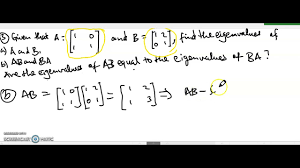 ③ Given that A = [1 0; 1 1] and B = [1 2; 0 1], find the eigenvalues of
a) A and B.
b) AB and BA
Are the eigenvalues of AB equal to the eigenvalues of BA?
ⓑ AB = [1 0; 1 1][1 2; 0 1] = [1 2; 1 3] ⇒ AB -
SCREENCAST-O-MATIC